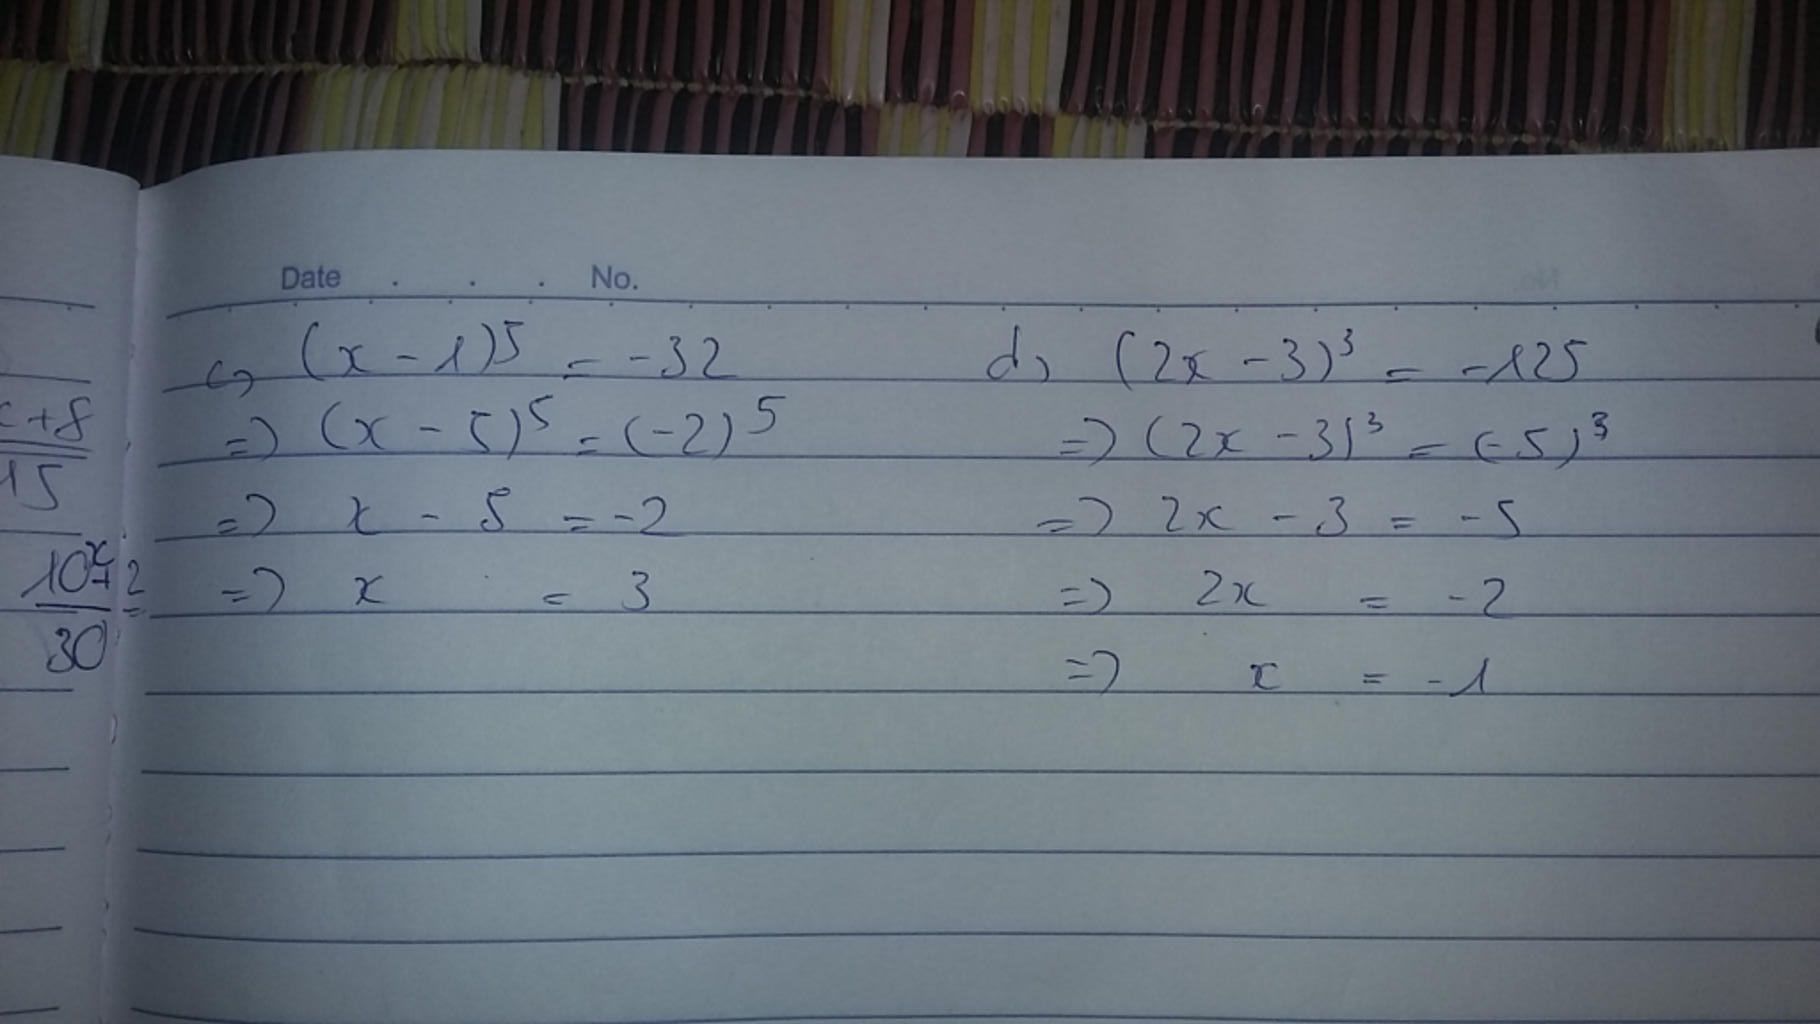 x+8
15
10x+2
30 =
Date . . . No.
c, (x - 1)⁵ = -32
=> (x - 5)⁵ = (-2)⁵
=> x - 5 = -2
=> x = 3
d, (2x - 3)³ = -125
=> (2x - 3)³ = (-5)³
=> 2x - 3 = -5
=> 2x = -2
=> x = -1